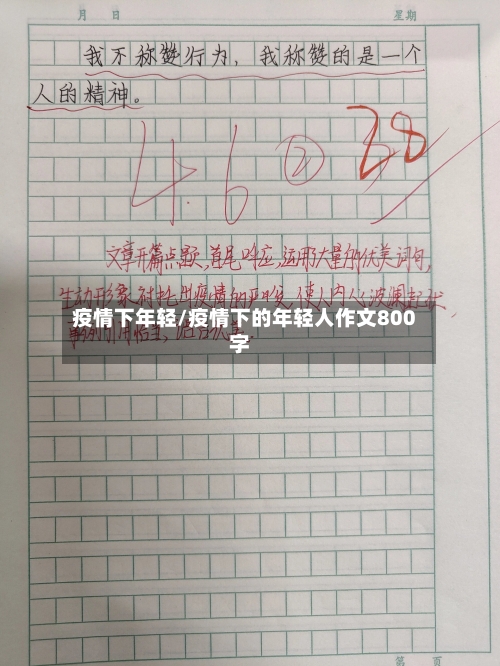 月 日 星期
我不称赞行为，我称赞的是一个
人的精神。
4.6 ② 38
文章开篇点题，首尾呼应，运用大量的优美词句，
生动形象衬托出疫情的严峻，使人内心波澜起伏，
疫情下年轻/疫情下的年轻人作文800
字
第 页